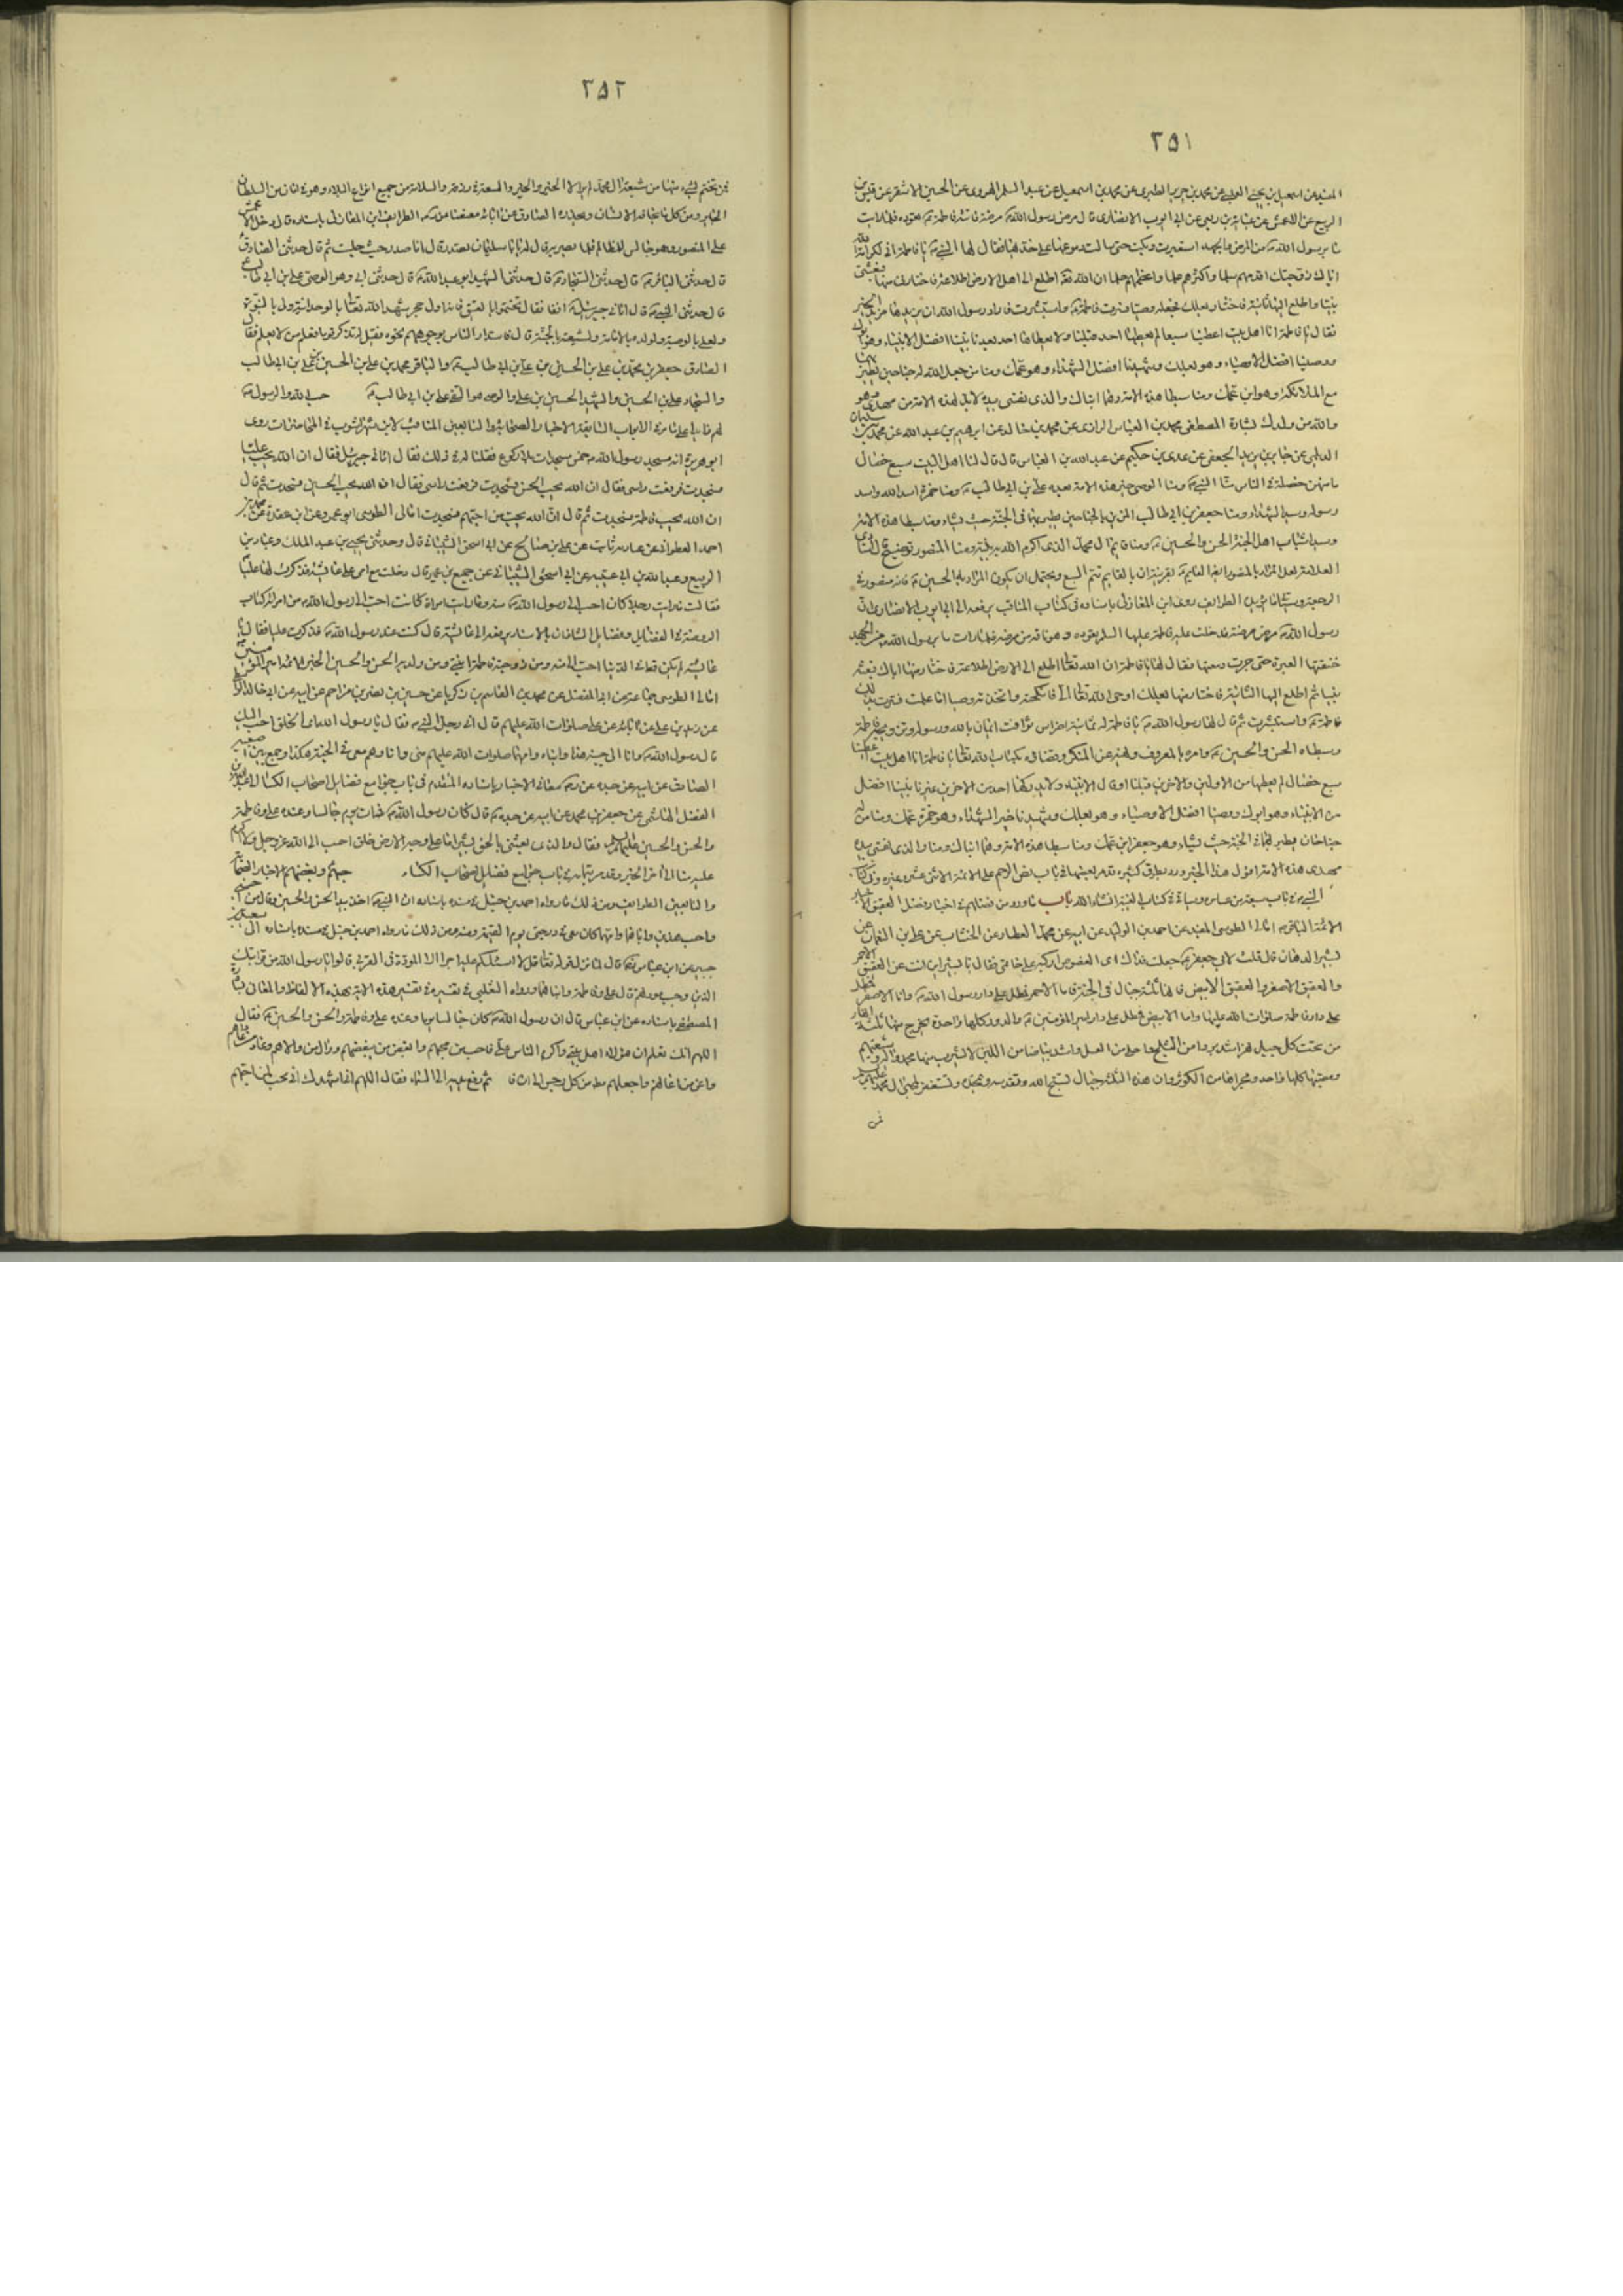 ٣٥١
المفيد عن اسمعيل بن يحيى العبسي عن محمد بن جرير الطبري عن محمد بن اسمعيل عن عبد السلم الهروي عن الحسين الاشقر عن قيس بن
الربيع عن الاعمش عن عباية بن ربعي عن ابي ايوب الانصاري قال مرض رسول الله مرضة فاتته فاطمة تعوده فلما رات
ما برسول الله من المرض والجهد استعبرت وبكت حتى سالت دموعها على خديها فقال لها النبي يا فاطمة اني لكرامة الله
اياك زوجتك اقدمهم سلما واكثرهم علما واعظمهم حلما ان الله تعالى اطلع الى اهل الارض اطلاعة فاختارني منها فبعثني
نبيا واطلع اليها ثانية فاختار بعلك فجعله وصيا فسرت فاطمة واستبشرت فاراد رسول الله ان يزيدها مزيد الخير
فقال يا فاطمة انا اهل بيت اعطينا سبعا لم يعطها احد قبلنا ولا يعطاها احد بعدنا نبينا افضل الانبياء وهو ابوك
ووصينا افضل الاوصياء وهو بعلك وشهيدنا افضل الشهداء وهو عمك ومنا من جعل الله له جناحين يطير بهما
مع الملائكة وهو ابن عمك ومنا سبطا هذه الامة وهما ابناك والذي نفسي بيده لابد لهذه الامة من مهدي وهو
والله من ولدك بشارة المصطفى محمد بن العباس الرازي عن محمد بن خالد عن ابرهيم بن عبد الله عن محمد بن سليمان
الديلمي عن جابر بن يزيد الجعفي عن عدي بن حكيم عن عبد الله بن العباس قال قال لنا اهل البيت سبع خصال
ما منهن خصلة في الناس منا النبي ومنا الوصي خير هذه الامة بعده علي بن ابي طالب ومنا حمزة اسد الله واسد
رسوله وسيد الشهداء ومنا جعفر بن ابي طالب المزين بالجناحين يطير بهما في الجنة حيث يشاء ومنا سبطا هذه الامة
وسيدا شباب اهل الجنة الحسن والحسين ومنا قائم ال محمد الذي اكرم الله به نبيه ومنا المنصور توضيح
العلامة لعل المراد بالمنصور ايضا القائم بقرينة ان بالقائم تتم السبع ويحتمل ان يكون المراد به الحسين فانه منصور في
الرجعة الطرائف روى ابن المغازلي باسناده في كتاب المناقب يرفعه الى ابي ايوب الانصاري ان
رسول الله مرض مرضة فدخلت عليه فاطمة عليها السلم تعوده وهو ناقه من مرضه فلما رات ما برسول الله من الجهد
خنقتها العبرة حتى جرت دمعتها فقال لها يا فاطمة ان الله تعالى اطلع الى الارض اطلاعة فاختار منها اباك فبعثه
نبيا ثم اطلع اليها الثانية فاختار منها بعلك اوحى الله تعالى الي فانكحته واتخذته وصيا اما علمت فسرت بذلك
فاطمة واستبشرت ثم قال لها رسول الله يا فاطمة له ثمانية اضراس ثواقب ايمان بالله ورسوله وتزويجه فاطمة
وسبطاه الحسن والحسين وامره بالمعروف ونهيه عن المنكر وقضاؤه بكتاب الله تعالى يا فاطمة انا اهل بيت اعطينا
سبع خصال لم يعطها من الاولين والاخرين قبلنا او قال الانبياء ولا يدركها احد من الاخرين غيرنا نبينا افضل
من الانبياء وهو ابوك ووصينا افضل الاوصياء وهو بعلك وشهيدنا خير الشهداء وهو حمزة عمك ومنا من له
جناحان يطير بهما في الجنة حيث يشاء وهو جعفر ابن عمك ومنا سبطا هذه الامة وهما ابناك ومنا والذي نفسي بيده
مهدي هذه الامة اقول هذا الخبر ورد بطرق كثيرة قد مر بعضها في باب نص الرسول على الائمة الاثني عشر وغيره وفي كتاب
باب ما ورد من فضلهم في اخبار فضل العقيق
الائمة امالي الطوسي المفيد عن احمد بن الوليد عن ابيه عن محمد العطار عن الخشاب عن علي بن النعمان عن
بشير الدهان قال قلت لابي جعفر جعلت فداك اي الفصوص اركبه على خاتمي فقال يا بشير اين انت عن العقيق الاحمر
والعقيق الاصفر والعقيق الابيض فانها ثلثة جبال في الجنة فاما الاحمر فمطل على دار رسول الله واما الاصفر فمطل
على دار فاطمة صلوات الله عليها واما الابيض فمطل على دار امير المؤمنين والدور كلها واحدة يخرج منها ثلثة انهار
من تحت كل جبل نهر اشد بردا من الثلج واحلى من العسل واشد بياضا من اللبن لا يشرب منها الا محمد واله وشيعتهم
ومصبها كلها واحد ومجراها من الكوثر وان هذه الثلثة جبال تسبح الله وتقدسه وتمجده وتستغفر لمحبي ال محمد عليهم
فمن
٣٥٢
فمن تختم بشيء منها من شيعة ال محمد لم ير الا الخير والحسنى والسعة في رزقه والسلامة من جميع انواع البلاء وهو في امان من السلطان
الجائر ومن كل ما يخافه الانسان ويحذره الطرائف ابن المغازلي باسناده قال دخل الاعمش
على المنصور وهو جالس للمظالم فلما بصر به قال له يا سليمان تصدر قال انا صدر حيث جلست ثم قال حدثني الصادق
قال حدثني الباقر قال حدثني السجاد قال حدثني الشهيد ابو عبد الله قال حدثني ابي وهو الوصي علي بن ابي طالب
قال حدثني النبي قال اتاني جبرئيل انفا فقال تختموا بالعقيق فانه اول حجر شهد لله تعالى بالوحدانية ولي بالنبوة
ولعلي بالوصية ولولده بالامامة ولشيعته بالجنة قال فاستدار الناس بوجوههم نحوه فقيل له تذكر قوما فعلم من لا يعلم فقال
الصادق جعفر بن محمد بن علي بن الحسين بن علي بن ابي طالب والباقر محمد بن علي بن الحسين بن علي بن ابي طالب
والسجاد علي بن الحسين والشهيد الحسين بن علي والوصي هو التقي علي بن ابي طالب حب الله والرسول
لهم الابواب السابقة الاخبار الصحابة والتابعين المناقب لابن شهراشوب روى
ابو هريرة انه سجد رسول الله خمس سجدات بلا ركوع فقلنا له في ذلك فقال اتاني جبرئيل فقال ان الله يحب عليا
فسجدت فرفعت راسي فقال ان الله يحب الحسن فسجدت فرفعت راسي فقال ان الله يحب الحسين فسجدت ثم قال
ان الله يحب فاطمة فسجدت ثم قال ان الله يحب من احبهم فسجدت امالي الطوسي ابو عمرو عن ابن عقدة عن
احمد العطواني عن ثابت عن علي بن صالح عن ابي اسحق الشيباني قال وحدثني يحيى بن عبد الملك وعباد بن
الربيع وعبد الله بن ابي عتبة عن ابي اسحق الشيباني عن جميع بن عمير قال دخلت مع امي على عائشة فذكرت لها عليا
فقالت ما رايت رجلا كان احب الى رسول الله منه وما رايت امراة كانت احب الى رسول الله من امراته كتاب
الروضة الفضائل بالاسناد يرفعه الى عائشة قال كنت عند رسول الله فذكرت عليا فقال يا
عائشة لم يكن قط في الدنيا احب الى الله منه ومن زوجته فاطمة ابنتي ومن ولديه الحسن والحسين
امالي الطوسي جماعة عن ابي المفضل عن محمد بن القاسم بن زكريا عن حسين بن نصر بن مزاحم عن ابيه عن ابي خالد
عن زيد بن علي عن ابائه عن علي صلوات الله عليهم قال اتى رجل النبي فقال يا رسول الله اي الخلق احب اليك
قال رسول الله وانا الى جنبه هذا وابناه وامهما صلوات الله عليهم مني وانا وهم معي في الجنة هكذا وجمع بين اصبعيه
الصادق عن ابيه عن جده معاني الاخبار باسناده المتقدم في باب جوامع فضائل اصحاب الكساء الى عبد
الفضل الهاشمي عن جعفر بن محمد عن ابيه عن جده قال كان رسول الله ذات يوم جالسا وعنده علي وفاطمة
والحسن والحسين عليهم السلم فقال والذي بعثني بالحق بشيرا ما على وجه الارض خلق احب الى الله عز وجل ولا اكرم
عليه منا الى اخر الخبر وقد مر بتمامه في باب جوامع فضائل اصحاب الكساء حبهم وبغضهم الاخبار الصحابة
والتابعين الطرائف ومن ذلك ما رواه احمد بن حنبل في مسنده باسناده ان النبي اخذ بيد الحسن والحسين وقال من احبني
واحب هذين واباهما وامهما كان معي في درجتي يوم القيمة ومن ذلك ما رواه احمد بن حنبل في مسنده باسناده الى سعيد بن
جبير عن ابن عباس قال لما نزل قوله تعالى قل لا اسئلكم عليه اجرا الا المودة في القربى قالوا يا رسول الله من قرابتك
الذين وجب ودهم قال علي وفاطمة وابناهما ورواه الثعلبي في تفسيره في تفسير هذه الاية بهذه الالفاظ والمعاني بشارة
المصطفى باسناده عن ابن عباس قال ان رسول الله كان جالسا يوما وعنده علي وفاطمة والحسن والحسين فقال
اللهم انك تعلم ان هؤلاء اهل بيتي واكرم الناس علي فاحبب من يحبهم وابغض من يبغضهم ووال من والاهم وعاد من عاداهم
واعن من اعانهم واجعلهم مطهرين من كل رجس الى ان قال ثم رفع يديه الى السماء فقال اللهم اني اشهدك اني محب لمن احبهم